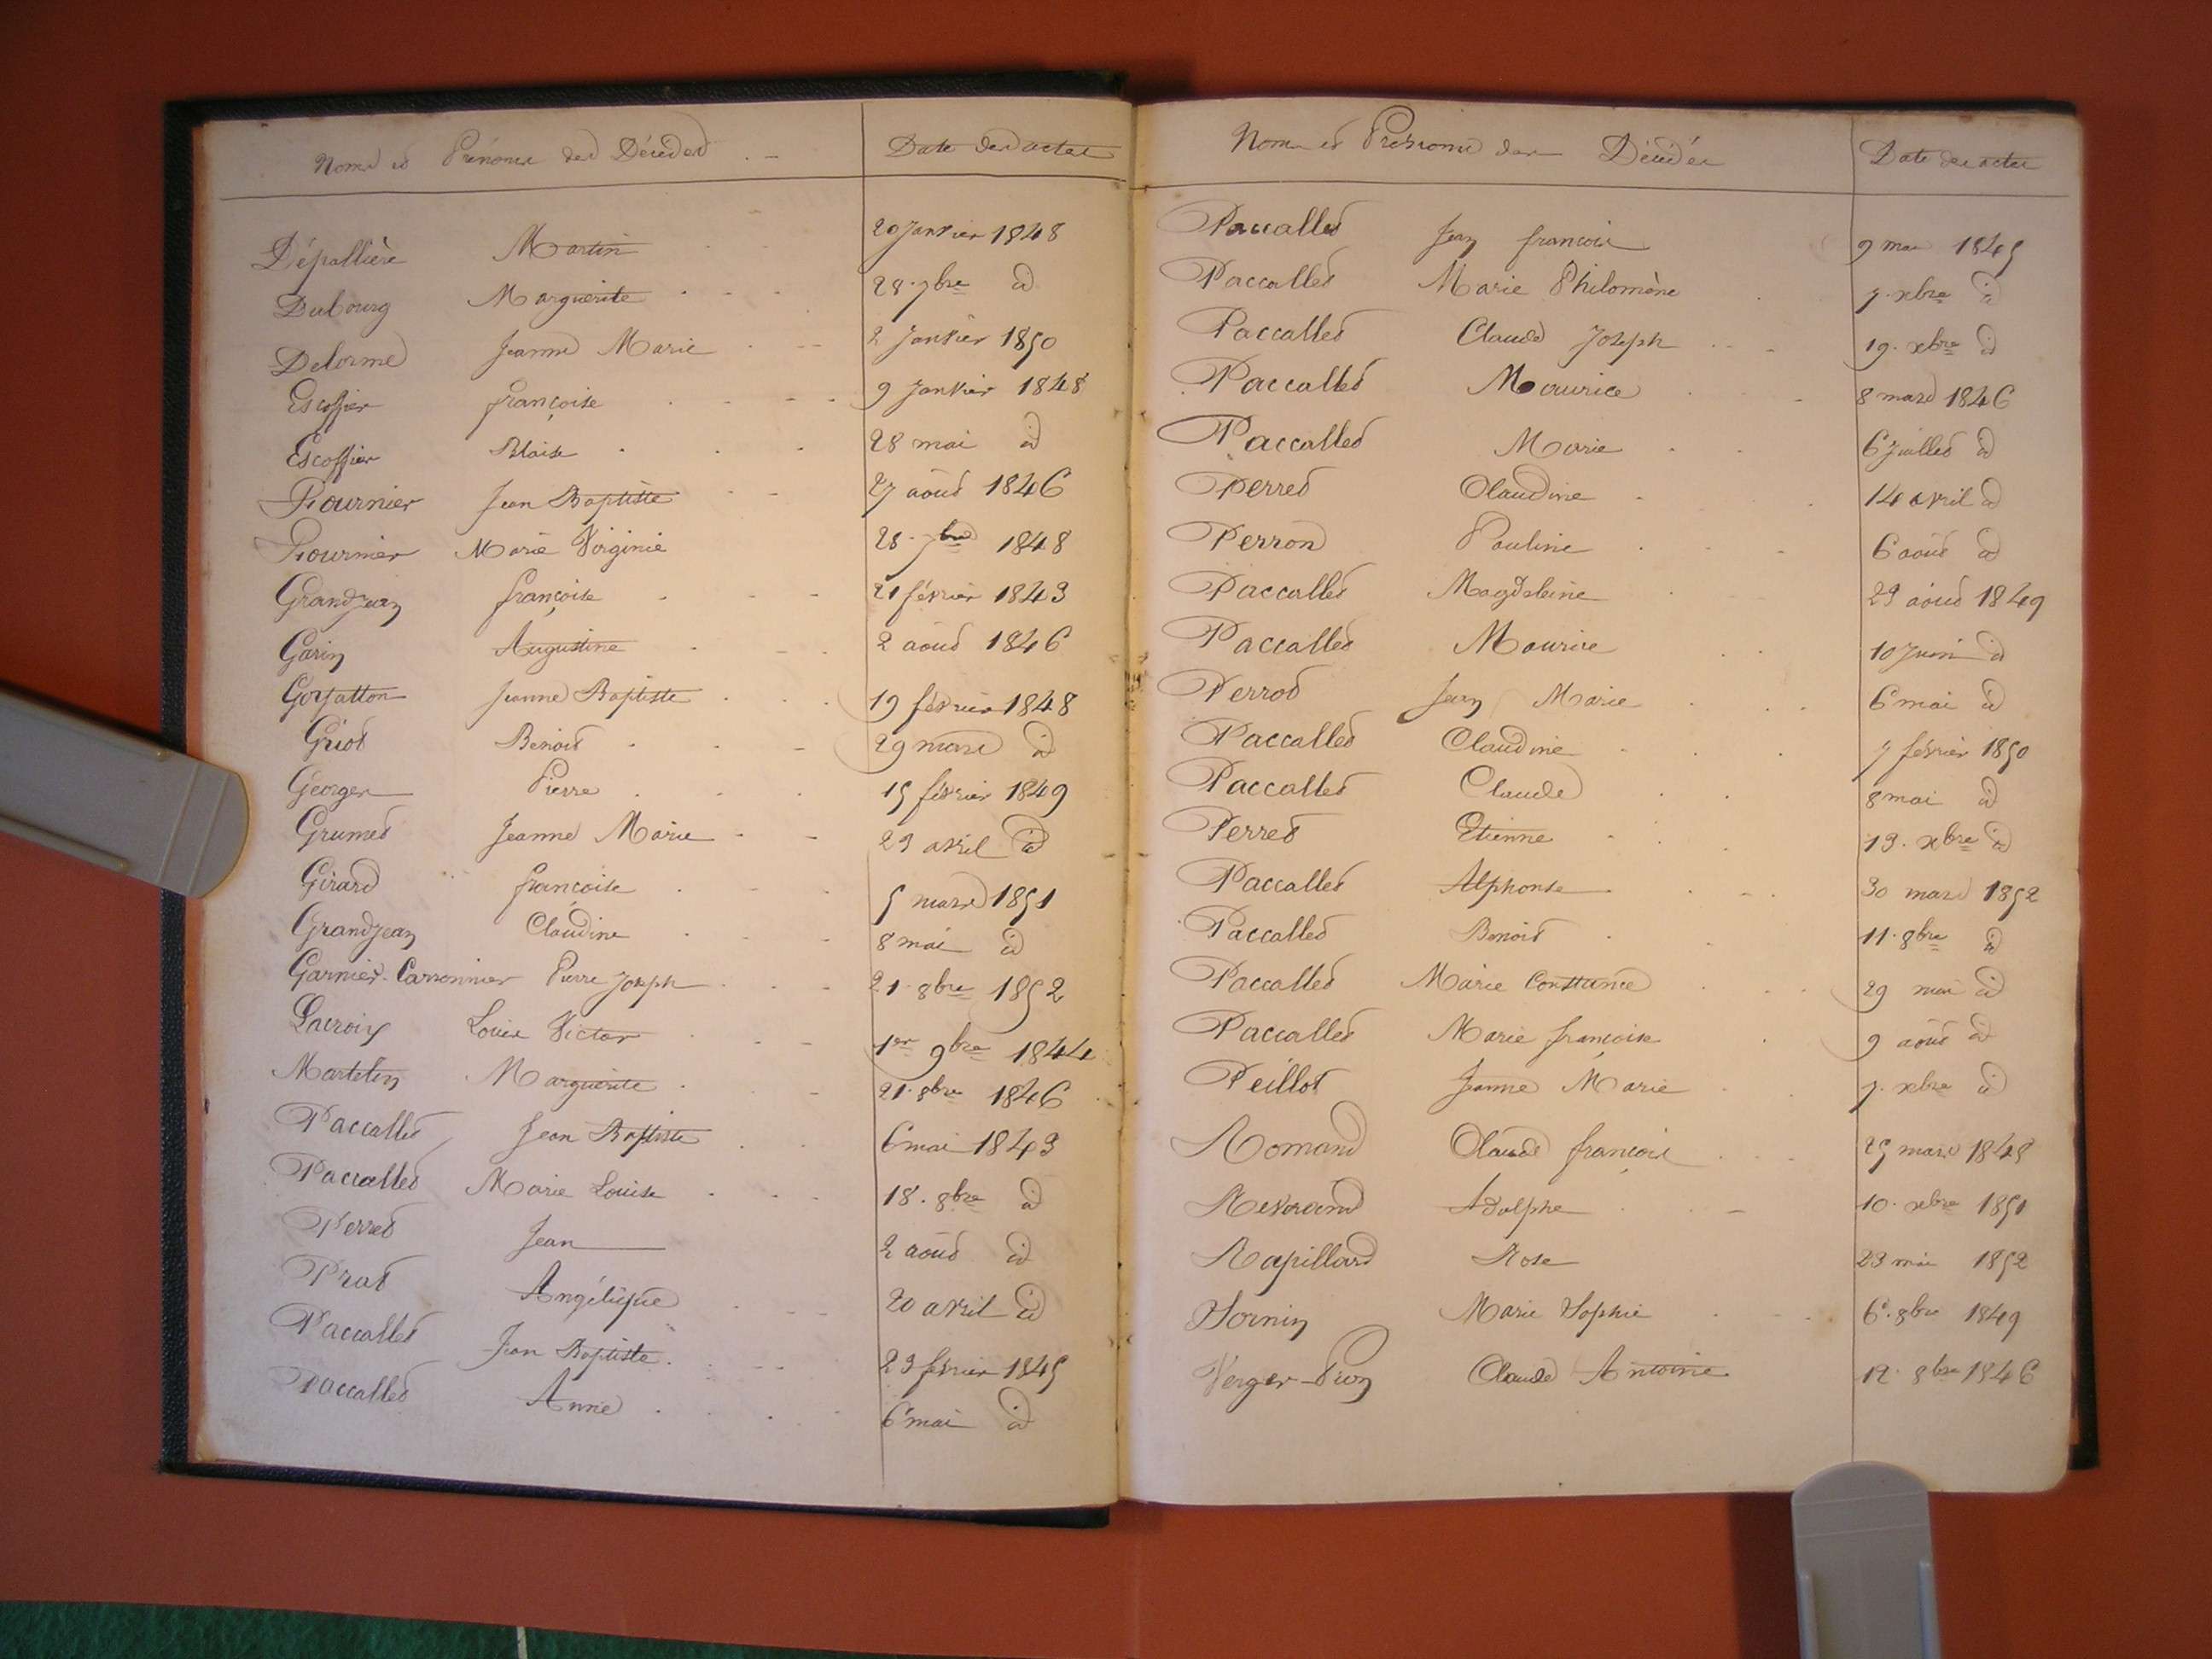 Noms et Prénoms des Décédés Date des actes
Dépallière Martin 20 Janvier 1848
Dubourg Marguerite 28. 7bre id
Delorme Jeanne Marie 2 Janvier 1850
Escoffier françoise 9 Janvier 1848
Escoffier Blaise 28 mai id
Fournier Jean Baptiste 27 août 1846
Fournier Marie Virginie 28. 7bre 1848
Grandjean françoise 21 février 1843
Garin Augustine 2 août 1846
Goyatton Jeanne Baptiste 19 février 1848
Griot Benoit 29 mars id
Georges Pierre 15 février 1849
Grumet Jeanne Marie 23 avril id
Girard françoise 5 mars 1851
Grandjean Claudine 8 mai id
Garnier-Carronnier Pierre Joseph 21. 8bre 1852
Lacroix Louis Victor 1er 9bre 1844
Martelin Marguerite 21. 8bre 1846
Paccallet Jean Baptiste 6 mai 1843
Paccallet Marie Louise 18. 8bre id
Perret Jean 2 août id
Prat Angélique 20 avril id
Paccallet Jean Baptiste 23 février 1845
Paccallet Anne 6 mai id
Noms et Prénoms des Décédés Date des actes
Paccallet Jean françois 9 mai 1845
Paccallet Marie Philomène 7. xbre id
Paccallet Claude Joseph 19. xbre id
Paccallet Maurice 8 mars 1846
Paccallet Marie 6 Juillet id
Perret Claudine 14 avril id
Perron Pauline 6 août id
Paccallet Magdeleine 23 août 1849
Paccallet Maurice 10 Juin id
Perrot Jean Marie 6 mai id
Paccallet Claudine 7 février 1850
Paccallet Claude 8 mai id
Perret Etienne 13. xbre id
Paccallet Alphonse 30 mars 1852
Paccallet Benoit 11. 8bre id
Paccallet Marie Constance 29 mai id
Paccallet Marie françoise 9 août id
Peillot Jeanne Marie 7. xbre id
Romand Claude françois 25 mars
Adolphe 10. xbre 1851
Rapillard Rose 23 mai 1852
Marie Sophie 6. 8bre 1849
Verger-Pion Claude Antoine 12. 8bre 1846